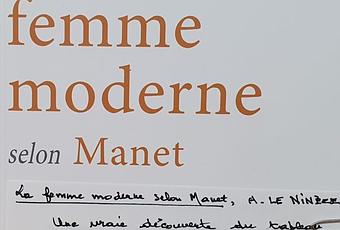 femme
moderne
selon Manet
La femme moderne selon Manet, A. LE NINÈZE
Une vraie découverte du tableau